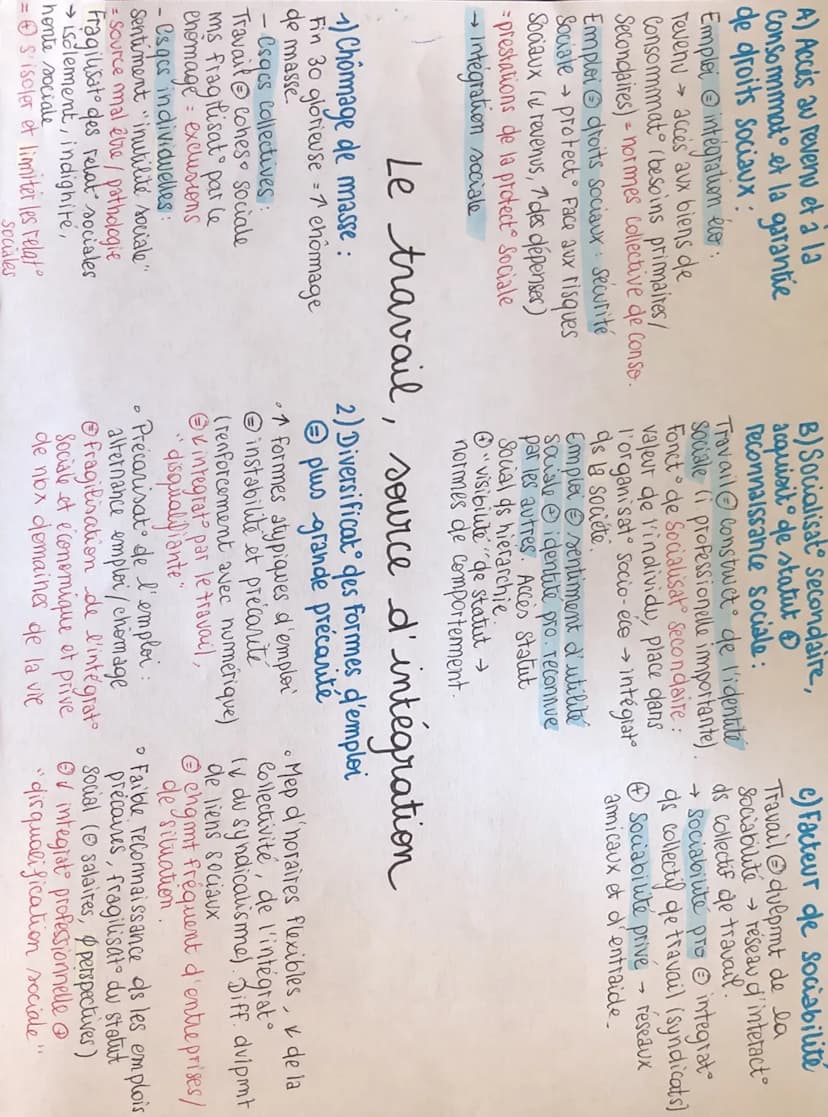 A) Accès au revenu et à la
consommat° et la garantie
de droits sociaux :
Emploi ⊜ intégration éco :
revenu → accès aux biens de
consommat° (besoins primaires/
secondaires) = normes collective de conso.
Emploi ⊜ droits sociaux : sécurité
sociale → protect° face aux risques
sociaux (↓ revenus, ↑ des dépenses)
= prestations de la protect° sociale
→ intégration sociale
B) Socialisat° secondaire,
acquisit° de statut ⊕
reconnaissance sociale :
Travail ⊜ construct° de l'identité
sociale (i. professionelle importante).
Fonct° de socialisat° secondaire :
valeur de l'individu, place dans
l'organisat° socio-éco → intégrat°
ds la société.
Emploi ⊜ sentiment d'utilité
sociale ⊕ identité pro. reconnue
par les autres. Accès statut
social ds hiérarchie
⊕ "visibilité" de statut →
normes de comportement.
c) Facteur de sociabilité
Travail ⊜ dvlpmt de la
sociabilité → réseau d'interact°
ds collectif de travail.
→ sociabilité pro ⊜ intégrat°
ds collectif de travail (syndicats)
⊕ sociabilité privé → réseaux
amicaux et d'entraide.
Le travail, source d'intégration
1) Chômage de masse :
Fin 30 glorieuse = ↑ chômage
de masse
- Csqcs collectives :
Travail ⊜ cohes° sociale
mis fragilisat° par le
chômage = exclusions
- Csqcs individuelles :
sentiment "inutilité sociale"
= source mal être / pathologie
Fragilisat° des relat° sociales
→ isolement, indignité,
honte sociale
= ⊕ s'isoler et limiter les relat°
sociales
2) Diversificat° des formes d'emploi
⊜ plus grande précarité
° ↑ formes atypiques d'emploi
⊜ instabilité et précarité
(renforcement avec numérique)
⊜ ↓ intégrat° par le travail,
"disqualifiante"
° Précarisat° de l'emploi :
alternance emploi/chômage
⊜ fragilisation de l'intégrat°
sociale et économique et prive
de nbx domaines de la vie
° Mep d'horaires flexibles, ↓ de la
collectivité, de l'intégrat°
(↓ du syndicalisme). Diff. dvlpmt
de liens sociaux
⊜ chgmt fréquent d'entreprises /
de situation.
° Faible reconnaissance ds les emplois
précaires, fragilisat° du statut
social (⊖ salaires, ∅ perspectives)
⊖ ↓ intégrat° professionnelle ⊕
"disqualification sociale"